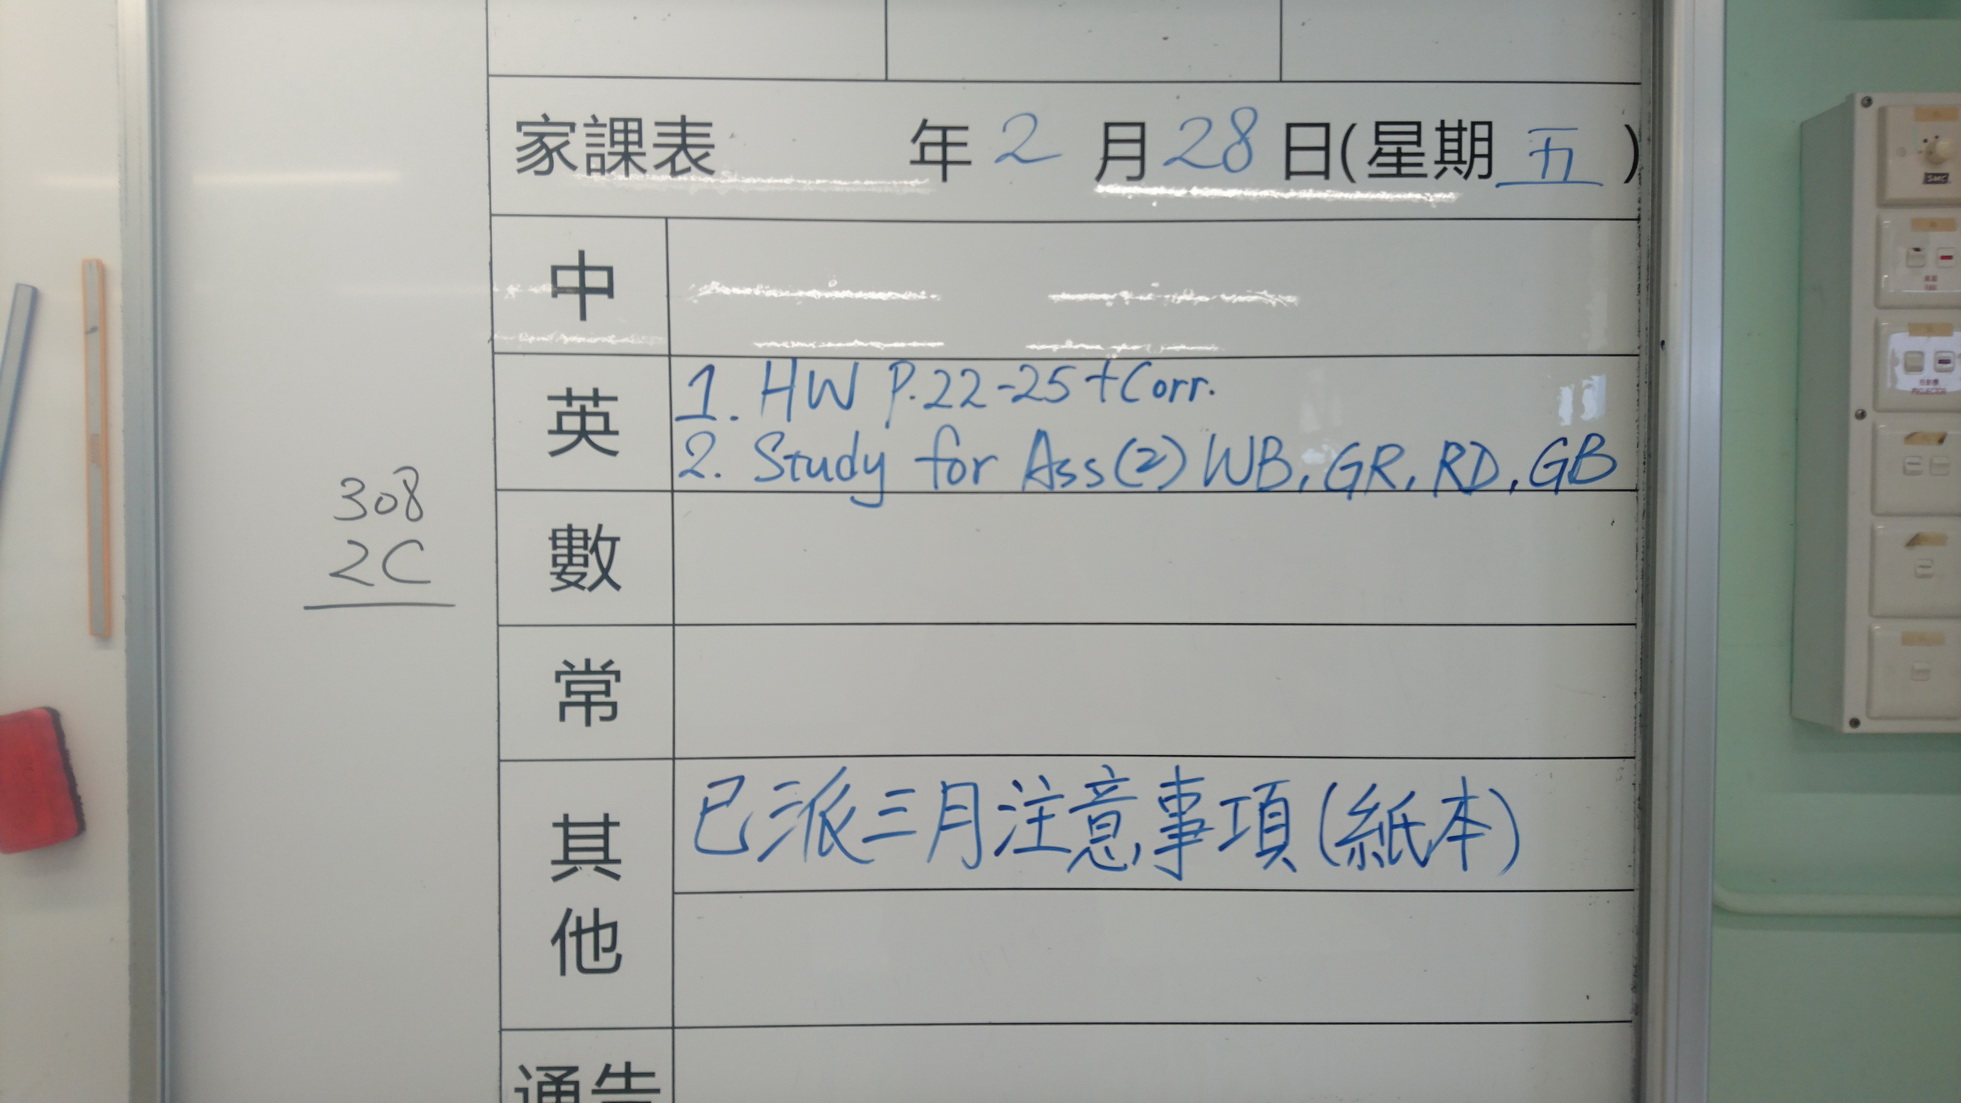 家課表 年2月28日(星期五)
中
英
1. HW P.22-25+Corr.
2. Study for Ass(2) WB, GR, RD, GB
308
2C
數
常
其他
已派三月注意事項(紙本)
通告